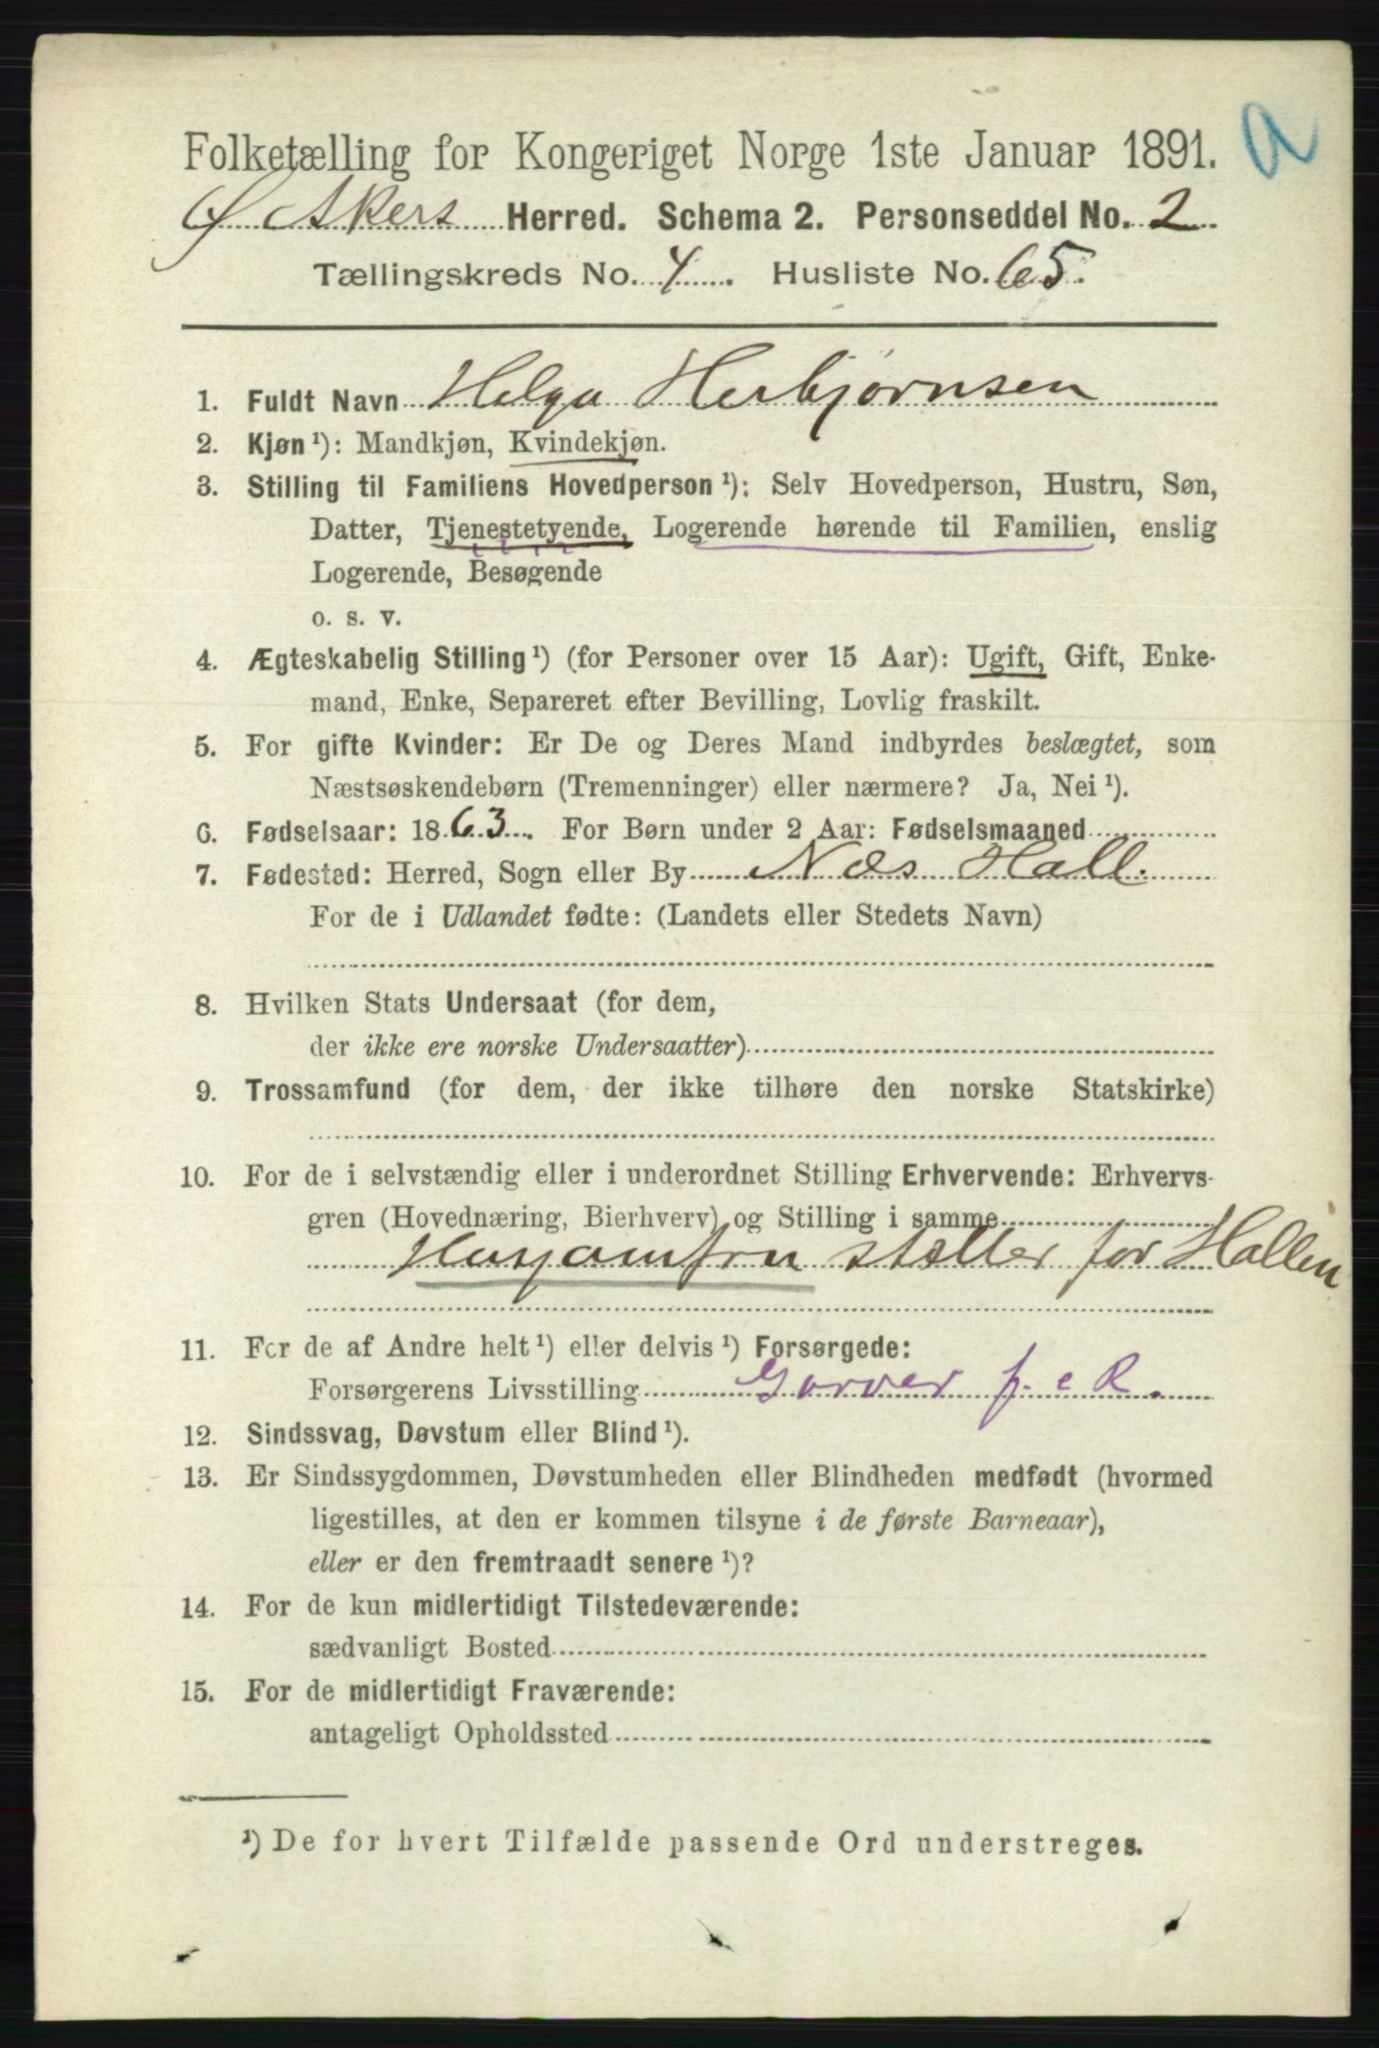 a
Folketælling for Kongeriget Norge 1ste Januar 1891.
Ø Akers Herred. Schema 2. Personseddel No. 2
Tællingskreds No. 4. Husliste No. 65.
1. Fuldt Navn Helga Herbjørnsen
2. Kjøn ¹): Mandkjøn, Kvindekjøn.
3. Stilling til Familiens Hovedperson ¹): Selv Hovedperson, Hustru, Søn,
Datter, Tjenestetyende, Logerende hørende til Familien, enslig
Logerende, Besøgende
o. s. v.
4. Ægteskabelig Stilling ¹) (for Personer over 15 Aar): Ugift, Gift, Enke-
mand, Enke, Separeret efter Bevilling, Lovlig fraskilt.
5. For gifte Kvinder: Er De og Deres Mand indbyrdes beslægtet, som
Næstsøskendebørn (Tremenninger) eller nærmere? Ja, Nei ¹).
6. Fødselsaar: 1863. For Børn under 2 Aar: Fødselsmaaned
7. Fødested: Herred, Sogn eller By Næs Hall.
For de i Udlandet fødte: (Landets eller Stedets Navn)
8. Hvilken Stats Undersaat (for dem,
der ikke ere norske Undersaatter)
9. Trossamfund (for dem, der ikke tilhøre den norske Statskirke)
10. For de i selvstændig eller i underordnet Stilling Erhvervende: Erhvervs-
gren (Hovednæring, Bierhverv) og Stilling i samme
Husjomfru stæller for Hallen
11. For de af Andre helt ¹) eller delvis ¹) Forsørgede:
Forsørgerens Livsstilling Garver f. e R.
12. Sindssvag, Døvstum eller Blind ¹).
13. Er Sindssygdommen, Døvstumheden eller Blindheden medfødt (hvormed
ligestilles, at den er kommen tilsyne i de første Barneaar),
eller er den fremtraadt senere ¹)?
14. For de kun midlertidigt Tilstedeværende:
sædvanligt Bosted
15. For de midlertidigt Fraværende:
antageligt Opholdssted
¹) De for hvert Tilfælde passende Ord understreges.